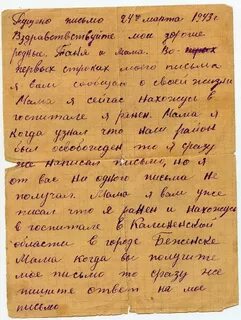 Пущено письмо 24го марта 1943 г.
Здравствуйте мои дорогие
родные. Таня и Мама. Во-
первых строках моего письма
я вам сообщаю о своей жизни
Мама я сейчас нахожусь в
госпитале я ранен. Мама я
когда узнал что наш район
был освобогеден то я сразу
же написал письмо, но я
от вас ни одного письма не
получал. Мама я вам уже
писал что я ранен и нахожусь
в госпитале в Калининской
области в городе Бежецке
Мама когда вы получите
мое письмо то сразу же
пишите ответ на мое
письмо